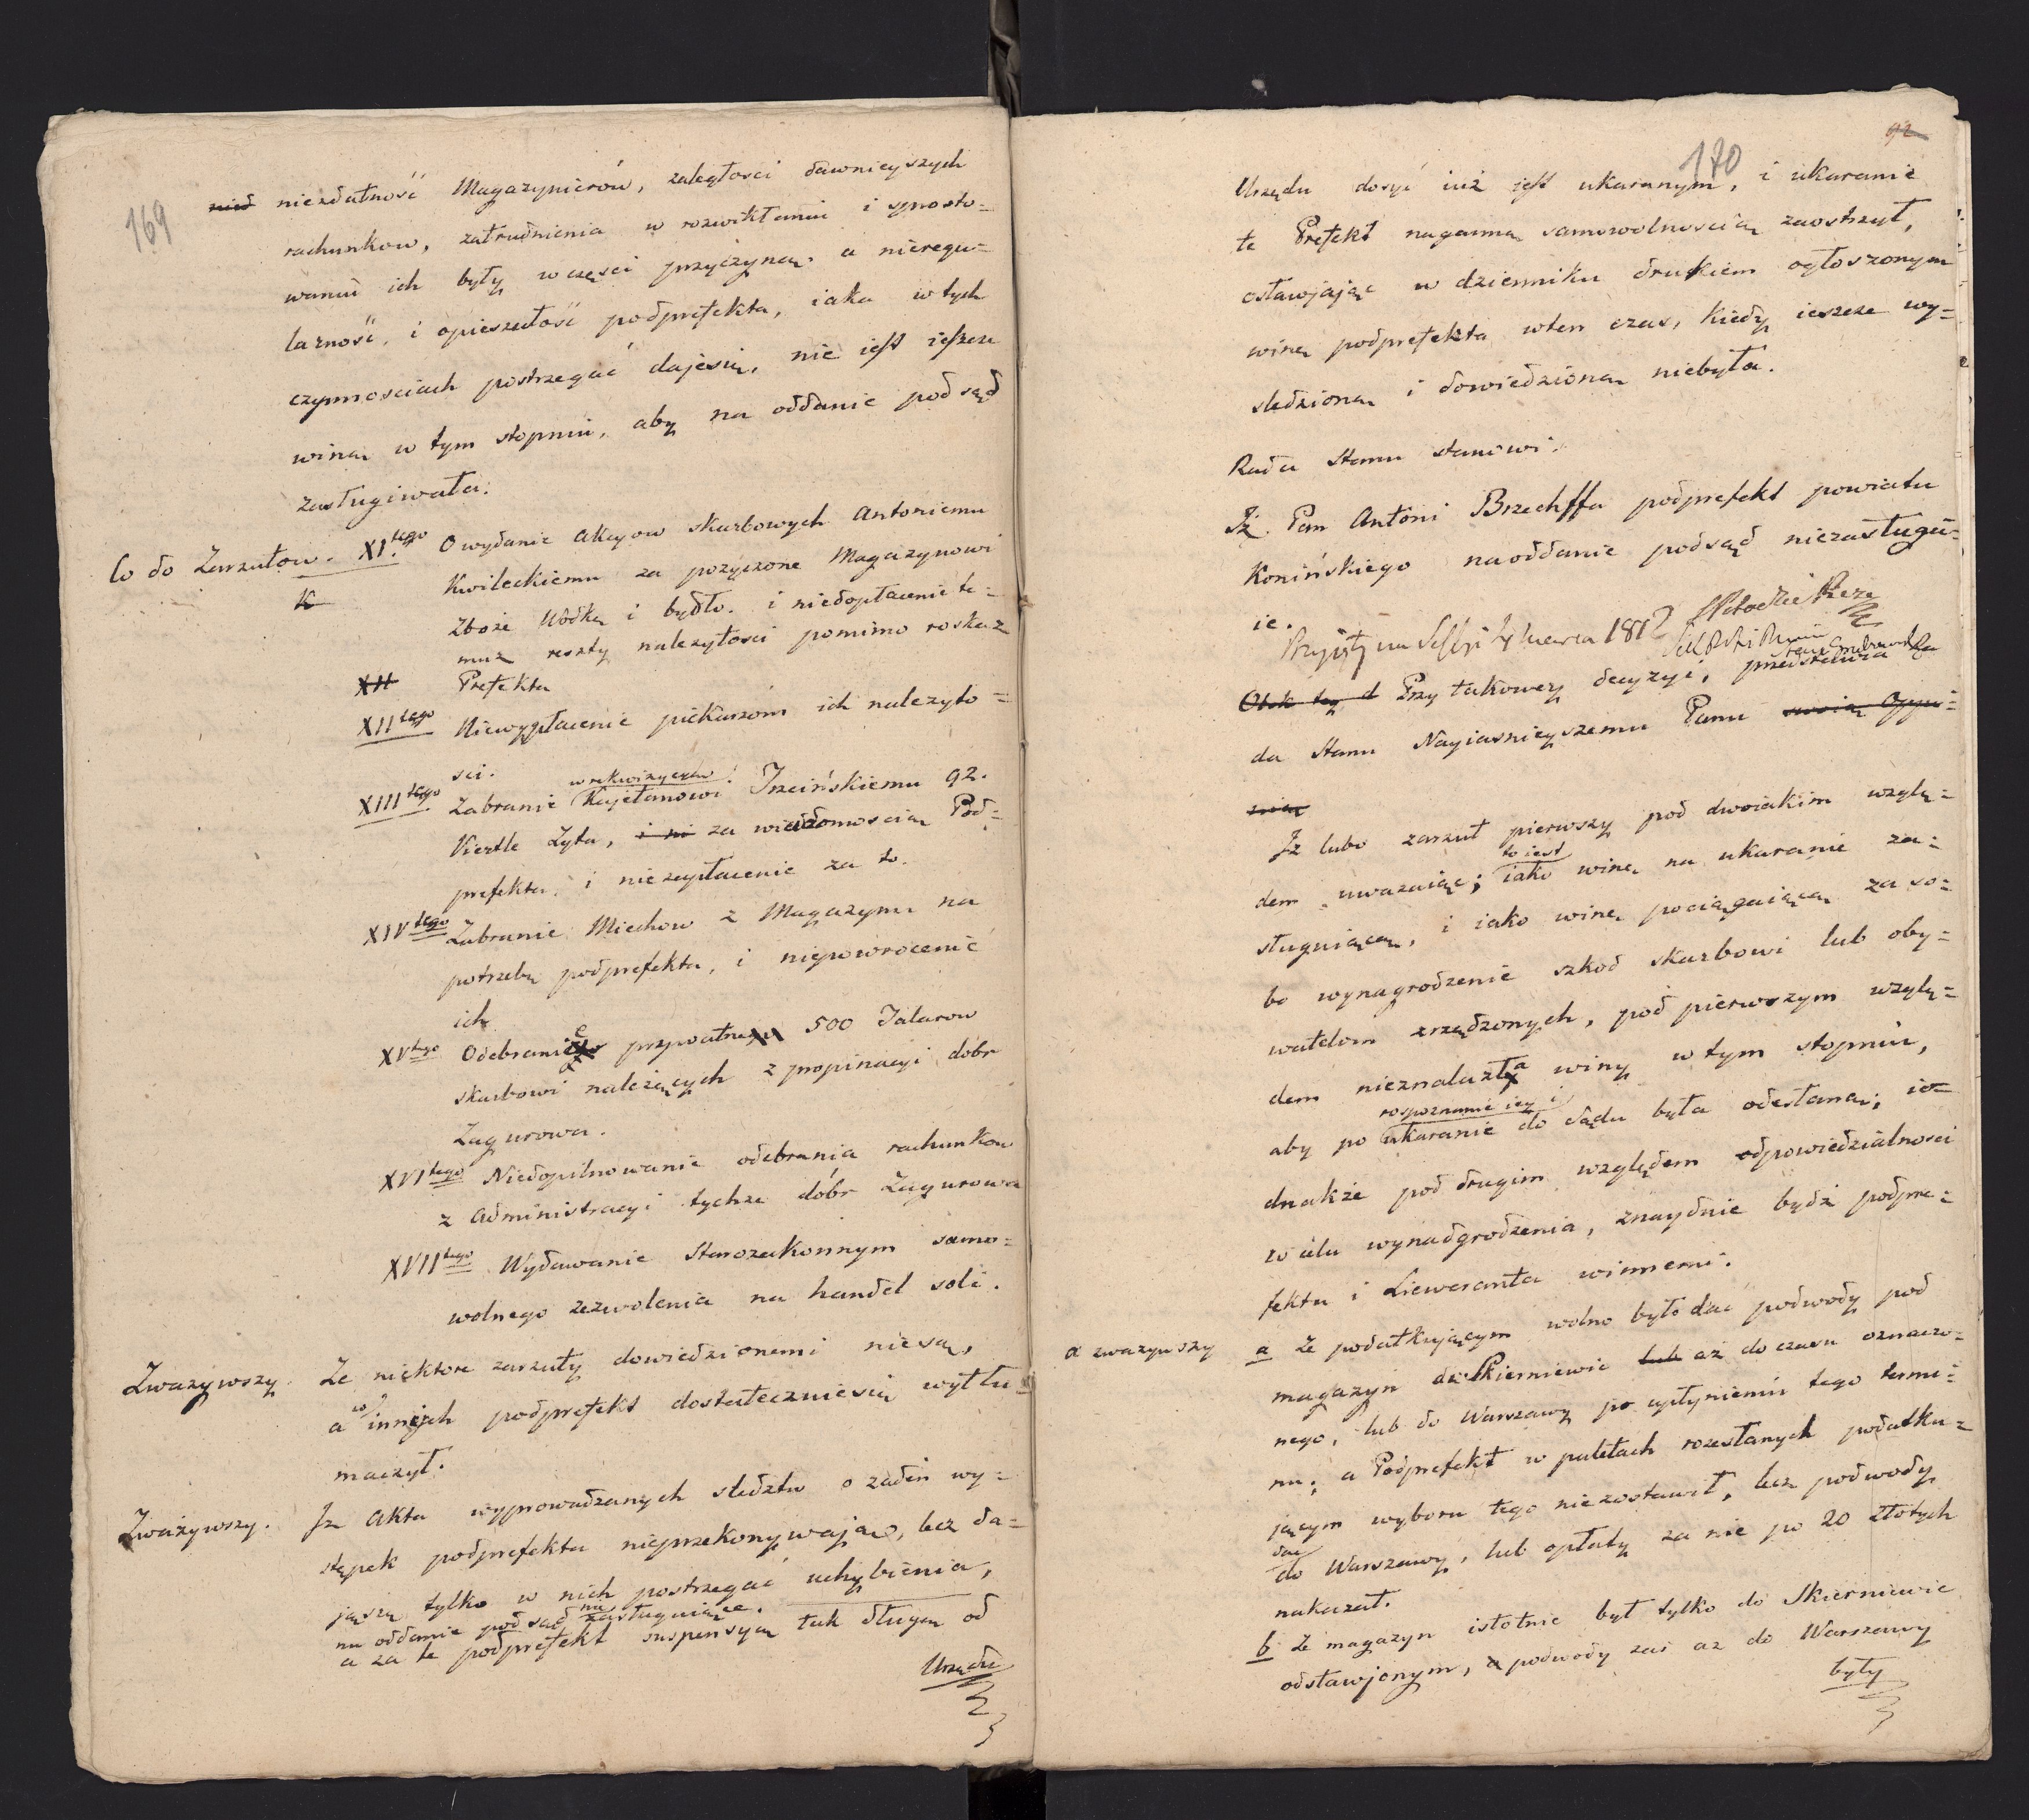 169
nied niezdatność Magazynierów, zaległości dawnieyszych
rachunkow, zatrudnienia w rozwikłaniu i sprosto=
waniu ich były w części przyczyną. a nieregu=
larność, i opieszałość podprefekta, iaka w tych
czynnosciach postrzegać dajesię, nie iest ieszcze
winą w tym stopniu, aby na oddanie pod sąd
zasługiwała.
Co do Zarzutow. XI.tego O wydanie akcyow skarbowych Antoniemu
Kwileckiemu za pożyczone Magazynowi
zboże Wódkę i bydło. i niedopłacenie te=
muż reszty należytości pomimo roskaz
XII Prefekta
XIItego Niewypłacenie piekarzom ich należyto=
sci.
w rekwizycyą
XIIItego Zabranie Kajetanowi Trzcińskiemu 92.
Viertle Żyta, i ni za wiadomoscią Pod=
prefekta, i niezapłacenie za to.
XIVtego Zabranie Miechow z Magazynu na
potrzebę podprefekta, i niepowrocenie
ich
XVtego Odebranie prywatne 500 Talarow
skarbowi należących z propinacyi dobr
Zagurowa.
XVItego Niedopilnowanie odebrania rachunkow
z administracyi tychże dóbr Zagurowa
XVIItego Wydawanie Starozakonnym samo=
wolnego zezwolenia na handel soli.
Zważywszy. Że niektore zarzuty dowiedzionemi niesą,
a w innych podprefekt dostatecznie się wytłu=
maczył.
Zważywszy. Iż Akta wyprowadzanych śledztw o żaden wy=
stępek podprefekta nieprzekonywaiąc, lecz da=
jąsię tylko w nich postrzegać uchybienia,
na oddanie pod sąd nie zasługuiące.
a za te podprefekt suspensyą tak długą od
Urzędu
92
170
Urzędu dosyć iuż jest ukaranym, i ukaranie
te Prefekt naganną samowolnoscią zaostrzył,
osławjając w dzienniku drukiem ogłoszonym
winę podprefekta wten czas, kiedy ieszcze wy=
sledzioną i dowiedzioną niebyła.
Rada Stanu stanowi.
Iż. Pan Antoni Brzechffa podprefekt powiatu
Konińskiego na oddanie pod sąd niezasługu=
ie.
Przyięty na Sessyi 4 Marca 1812
Obok tey d Przy takowey decyzyi, przedstawia Ra
da Stanu Nayiasnieyszemu Panu swoią Opyn=
nią
Iż lubo zarzut pierwszy pod dwoiakim wzglę=
to iest
dem uważaiąc; iako winę na ukaranie za=
sługuiącą, i iako winę pociągaiącą za so=
bo wynagrodzenie szkod skarbowi lub oby=
watelom zrządzonych, pod pierwszym wzglę=
dem nieznalazła winy w tym stopniu,
rospoznanie iey i
aby po ukaranie do sądu była odesłaną; ie=
dnakże pod drugim względem odpowiedzialnosci
w celu wynadgrodzenia, znayduie bydź podpre=
fekta i Liweranta winnemi.
a zważywszy a Że podatkującym wolno było dać podwody pod
magazyn do Skierniewic lub aż do czasu oznaczo=
nego, lub do Warszawy po upłynieniu tego termi=
nu; a Podprefekt w paletach rozesłanych podatku=
jącym wyboru tego niezostawił, lecz podwody
dać
do Warszawy, lub opłaty za nie po 20 złotych
nakazał.
b Że magazyn istotnie był tylko do Skierniewic
odstawjonym, a podwody zaś aż do Warszawy
były